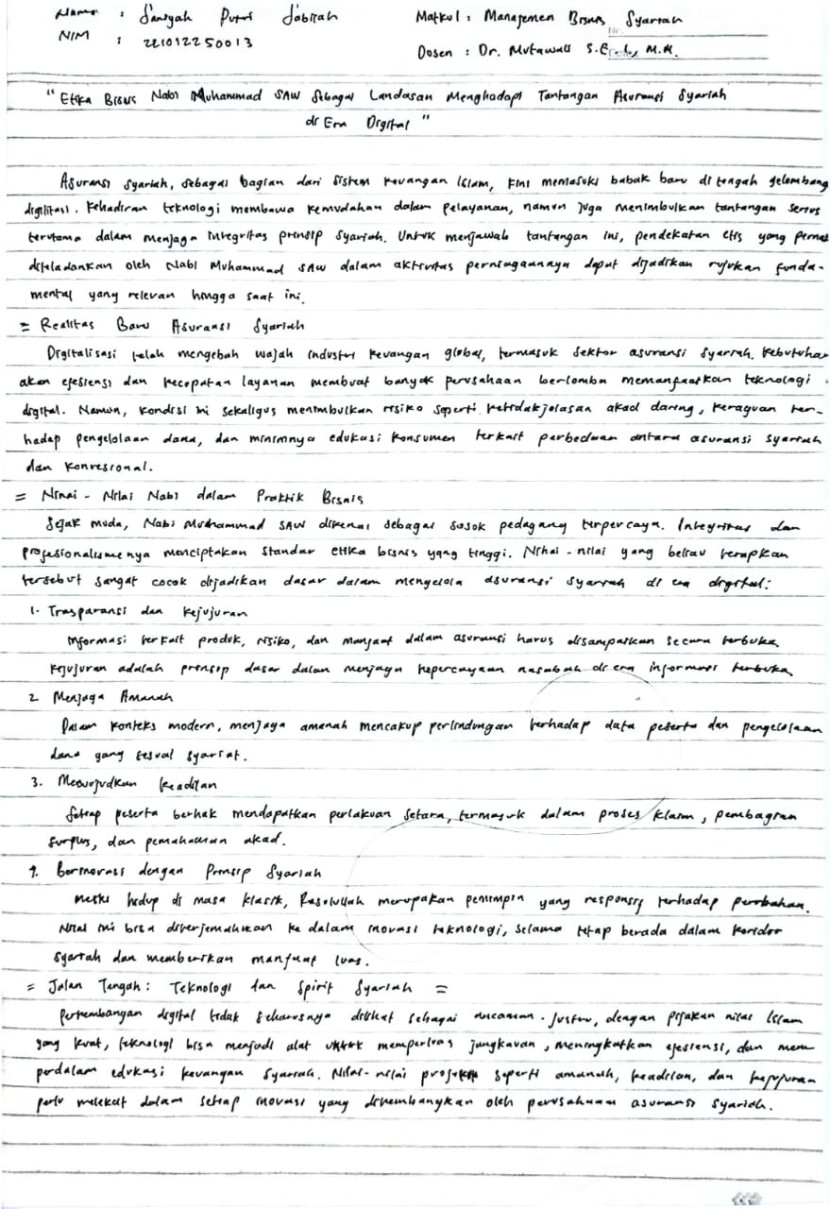 Nama : Saniyah Putri Sabirah Matkul : Manajemen Bisnis Syariah
NIM : 221012250013
Dosen : Dr. Mutawali S.E.I., M.M.
"Etika Bisnis Nabi Muhammad SAW Sebagai Landasan Menghadapi Tantangan Asuransi Syariah
di Era Digital"
Asuransi syariah, sebagai bagian dari sistem keuangan Islam, kini memasuki babak baru di tengah gelombang
digitasi. Kehadiran teknologi membawa kemudahan dalam pelayanan, namun juga menimbulkan tantangan serius
terutama dalam menjaga integritas prinsip syariah. Untuk menjawab tantangan ini, pendekatan etis yang pernah
diteladankan oleh Nabi Muhammad SAW dalam aktivitas perniagaannya dapat dijadikan rujukan funda-
mental yang relevan hingga saat ini.
= Realitas Baru Asuransi Syariah
Digitalisasi telah mengebah wajah industri keuangan global, termasuk sektor asuransi syariah. Kebutuhan
akan efesiensi dan kecepatan layanan membuat banyak perusahaan berlomba memanfaatkan teknologi
digital. Namun, kondisi ini sekaligus menimbulkan risiko seperti ketidakjelasan akad daring, keraguan ter-
hadap pengelolaan dana, dan minimnya edukasi konsumen terkait perbedaan antara asuransi syariah
dan konvesional.
= Ninai - Nilai Nabi dalam Praktik Bisnis
Sejak muda, Nabi Muhammad SAW dikenal sebagai sosok pedagang terpercaya. Integritas dan
profesionalismenya menciptakan standar etika bisnis yang tinggi. Nihai - nilai yang beliau terapkan
tersebut sangat cocok dijadikan dasar dalam mengelola asuransi syariah di era digital:
1. Trasparansi dan Kejujuran
Informasi terkait produk, risiko, dan manfaat dalam asuransi harus disampaikan secara terbuka.
Kejujuran adalah prinsip dasar dalam menjaga kepercayaan nasabah di era informasi terbuka
2 Menjaga Amanah
Dalam konteks modern, menjaga amanah mencakup perlindungan terhadap data peserta dan pengelolaan
dana yang sesuai syariat.
3. Mewujudkan Keadilan
Setiap peserta berhak mendapatkan perlakuan setara, termasuk dalam proses klaim, pembagian
surplus, dan pemahaman akad.
4. Berinovasi dengan Prinsip Syariah
Meski hidup di masa klasik, Rasulullah merupakan pemimpin yang responsif terhadap perubahan.
Nilai ini bisa diterjemahkan ke dalam inovasi teknologi, selama tetap berada dalam koridor
syariah dan memberikan manfaat luas.
= Jalan Tengah: Teknologi dan Spirit Syariah =
Perkembangan digital tidak seharusnya dilihat sebagai ancaman. Justru, dengan pijakan nilai Islam
yang kuat, teknologi bisa menjadi alat untuk memperluas jangkauan, meningkatkan efesiensi, dan mem
perdalam edukasi keuangan syariah. Nilai-nilai seperti amanah, keadilan, dan kejujuran
perlu melekat dalam setiap inovasi yang dikembangkan oleh perusahaan asuransi syariah.